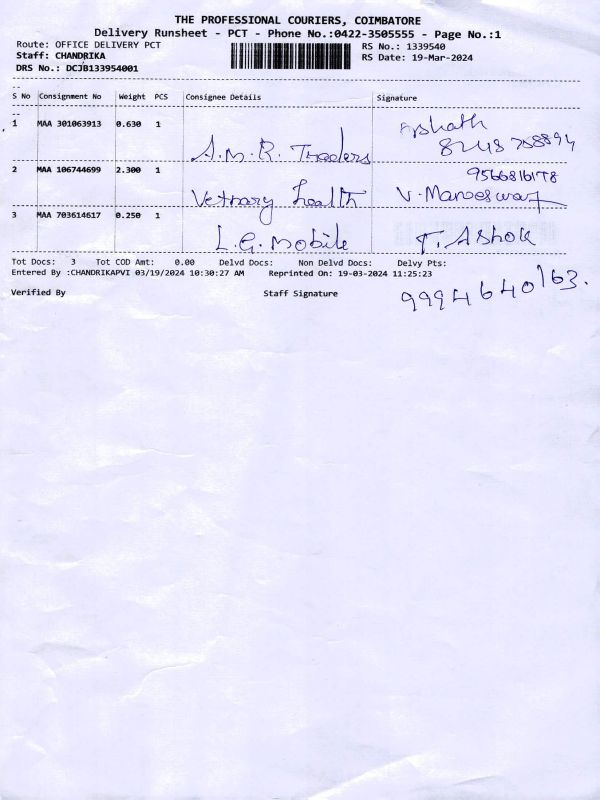 THE PROFESSIONAL COURIERS, COIMBATORE
Delivery Runsheet - PCT - Phone No.:0422-3505555 - Page No.:1
Route: OFFICE DELIVERY PCT
Staff: CHANDRIKA
DRS No.: DCJB133954001
RS No.: 1339540
RS Date: 19-Mar-2024
S No Consignment No Weight PCS Consignee Details Signature
1 MAA 301063913 0.630 1 A.M.R. Traders Arshath
2 MAA 106744699 2.300 1 Vetnary health 9566816178
V. Maneeswar
3 MAA 703614617 0.250 1 L.G. Mobile T. Ashok
Tot Docs: 3 Tot COD Amt: 0.00 Delvd Docs: Non Delvd Docs: Delvy Pts:
Entered By :CHANDRIKAPVI 03/19/2024 10:30:27 AM Reprinted On: 19-03-2024 11:25:23
Verified By Staff Signature
9994640163.